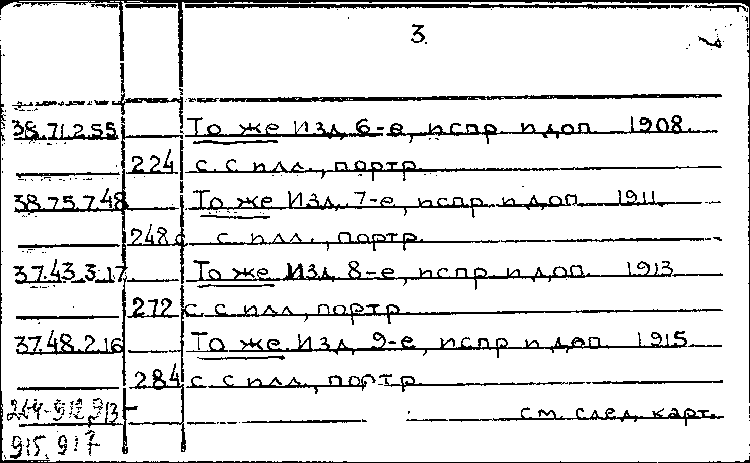 3
38.71.2.55 То же Изд. 6-е, испр. и доп. 1908.
224 с. с илл., портр.
38.75.7.48 То же Изд. 7-е, испр. и доп. 1911.
248 с. с илл., портр.
37.43.3.17 То же Изд. 8-е, испр. и доп. 1913
272 с. с илл., портр.
37.48.2.16 То же. Изд. 9-е, испр. и доп. 1915
284 с. с илл., портр.
см. след. карт.
915, 917